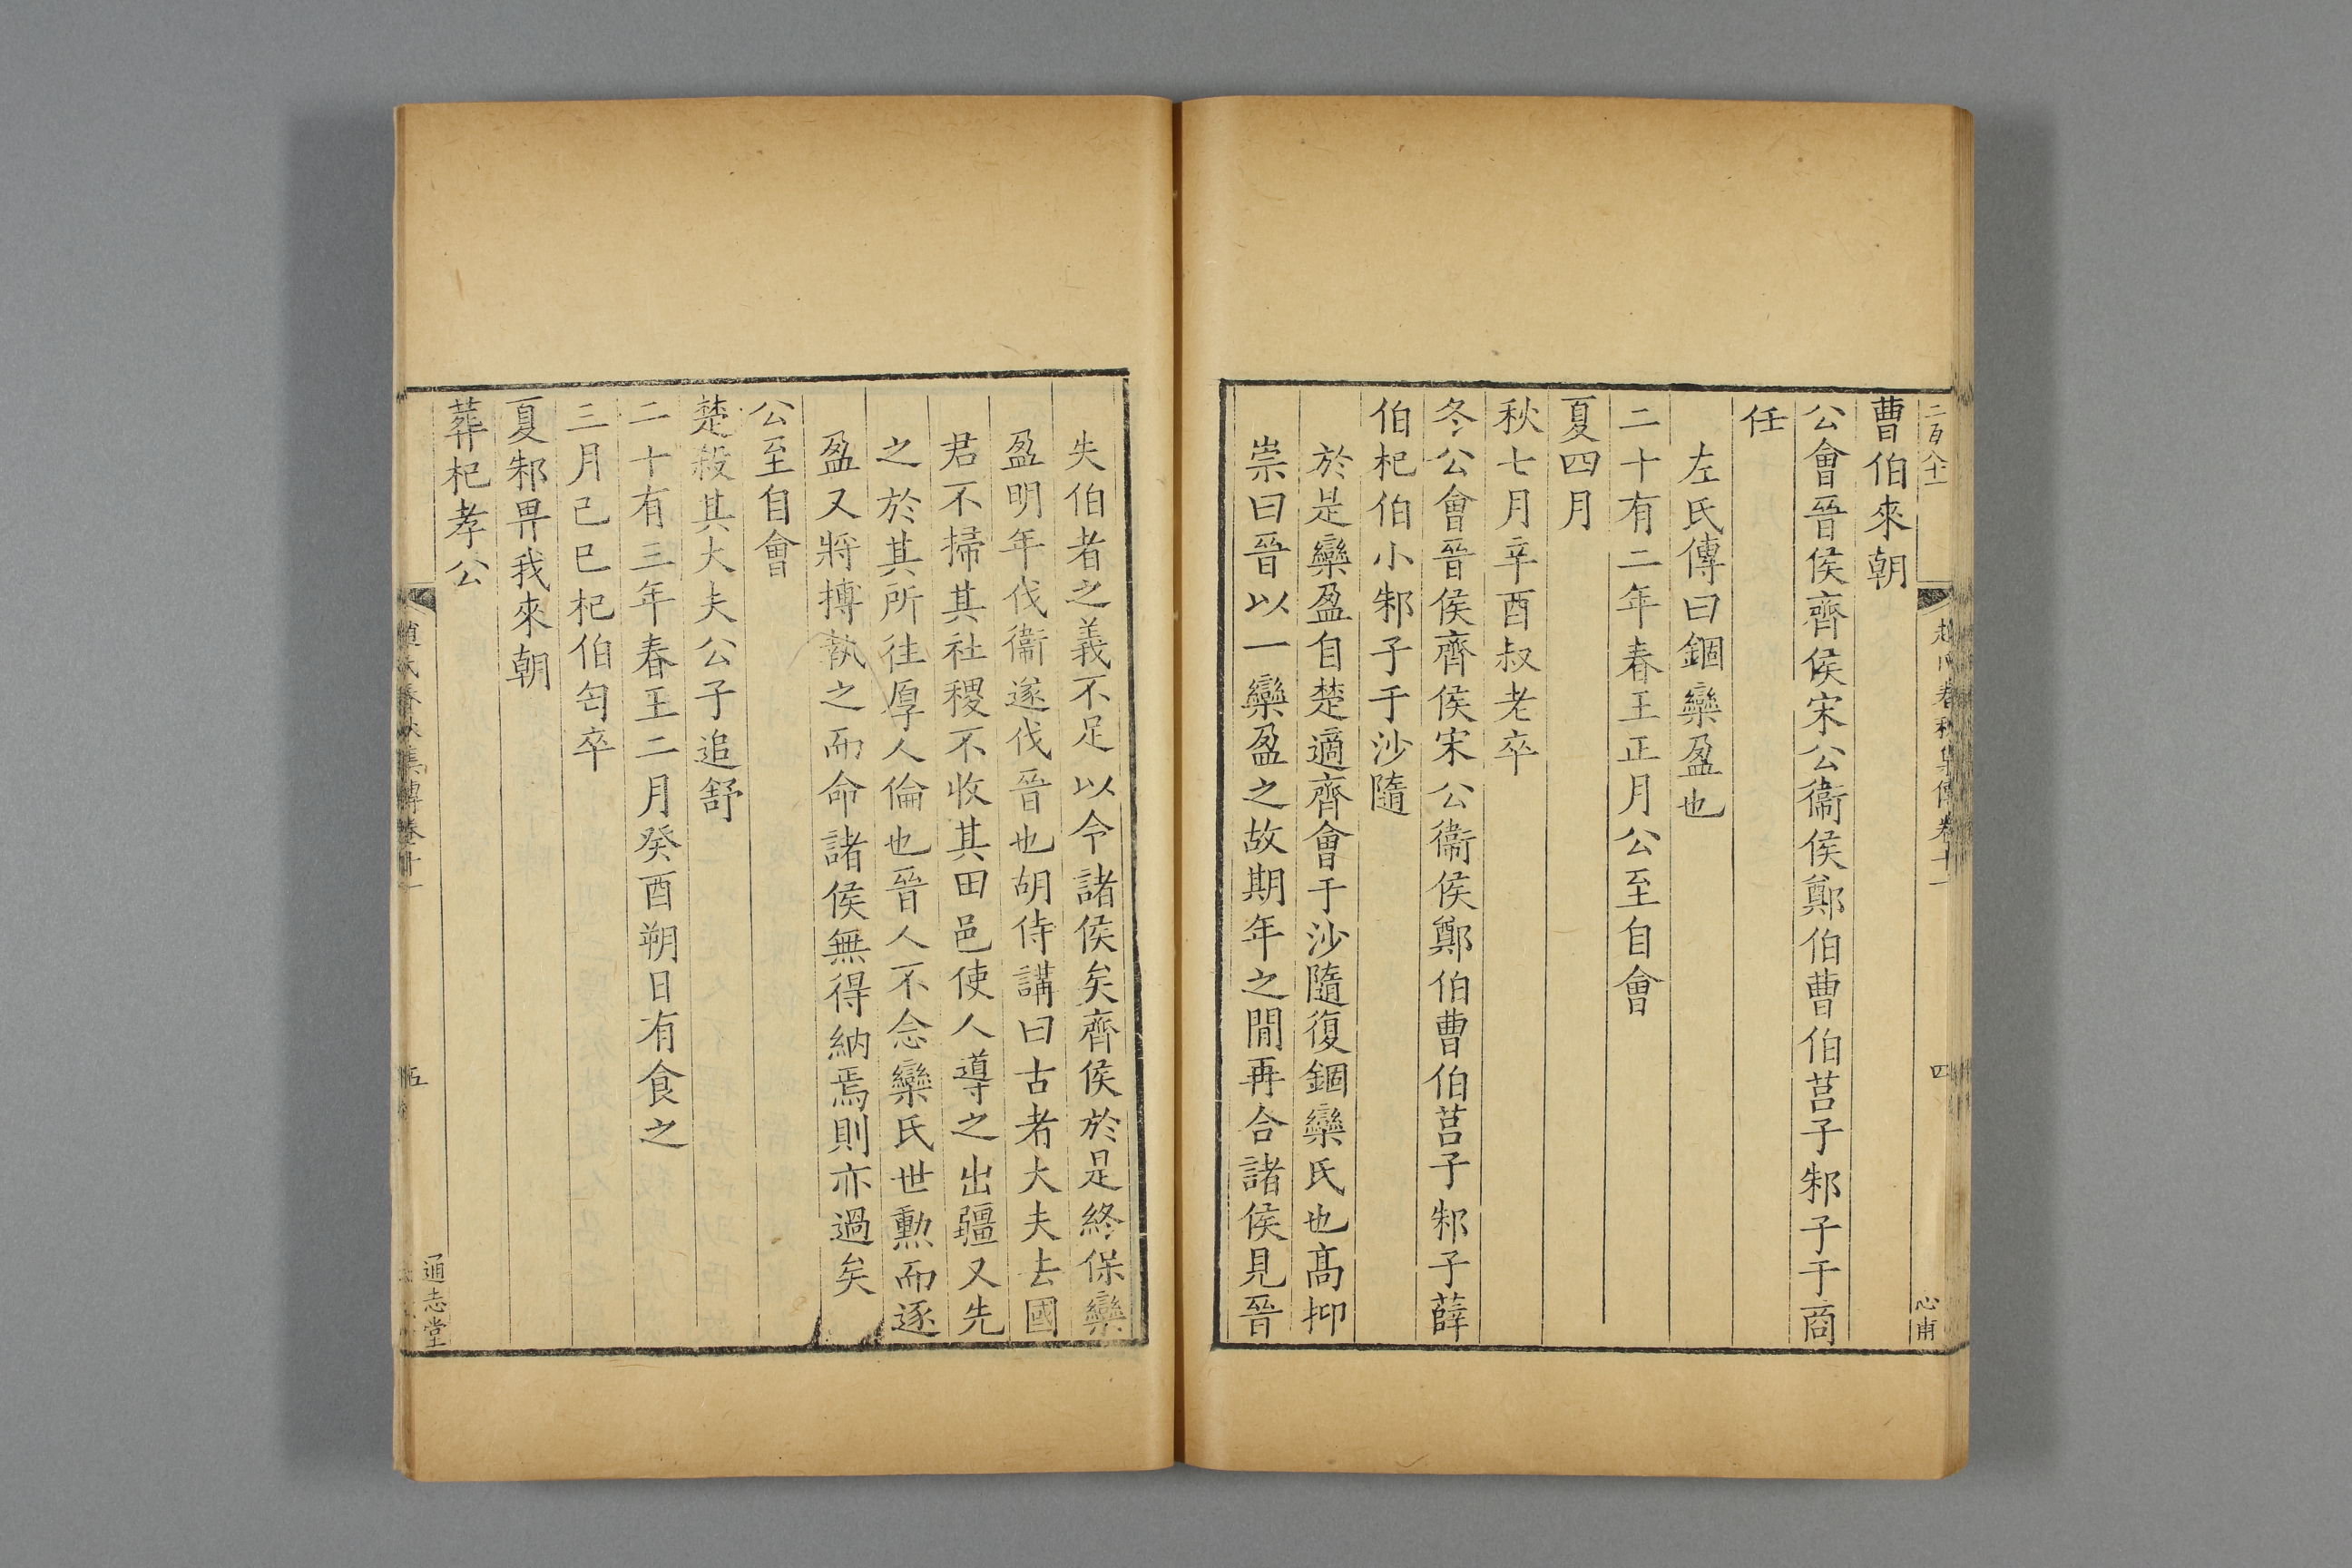 曹伯來朝
公會晉侯齊侯宋公衞侯鄭伯曹伯莒子邾子于商
任
左氏傳曰錮欒盈也
二十有二年春王正月公至自會
夏四月
秋七月辛酉叔老卒
冬公會晉侯齊侯宋公衞侯鄭伯曹伯莒子邾子薛
伯杞伯小邾子于沙隨
於是欒盈自楚適齊會于沙隨復錮欒氏也髙抑
崇曰晉以一欒盈之故期年之閒再合諸侯見晉
四
心甫
失伯者之義不足以令諸侯矣齊侯於是終保欒
盈明年伐衞遂伐晉也胡侍講曰古者大夫去國
君不掃其社稷不收其田邑使人導之出疆又先
之於其所往厚人倫也晉人不念欒氏世勲而逐
盈又將搏執之而命諸侯無得納焉則亦過矣
公至自會
楚殺其大夫公子追舒
二十有三年春王二月癸酉朔日有食之
三月己巳杞伯匄卒
夏邾畀我來朝
葬杞孝公
春秋集傳卷十一
五
通志堂